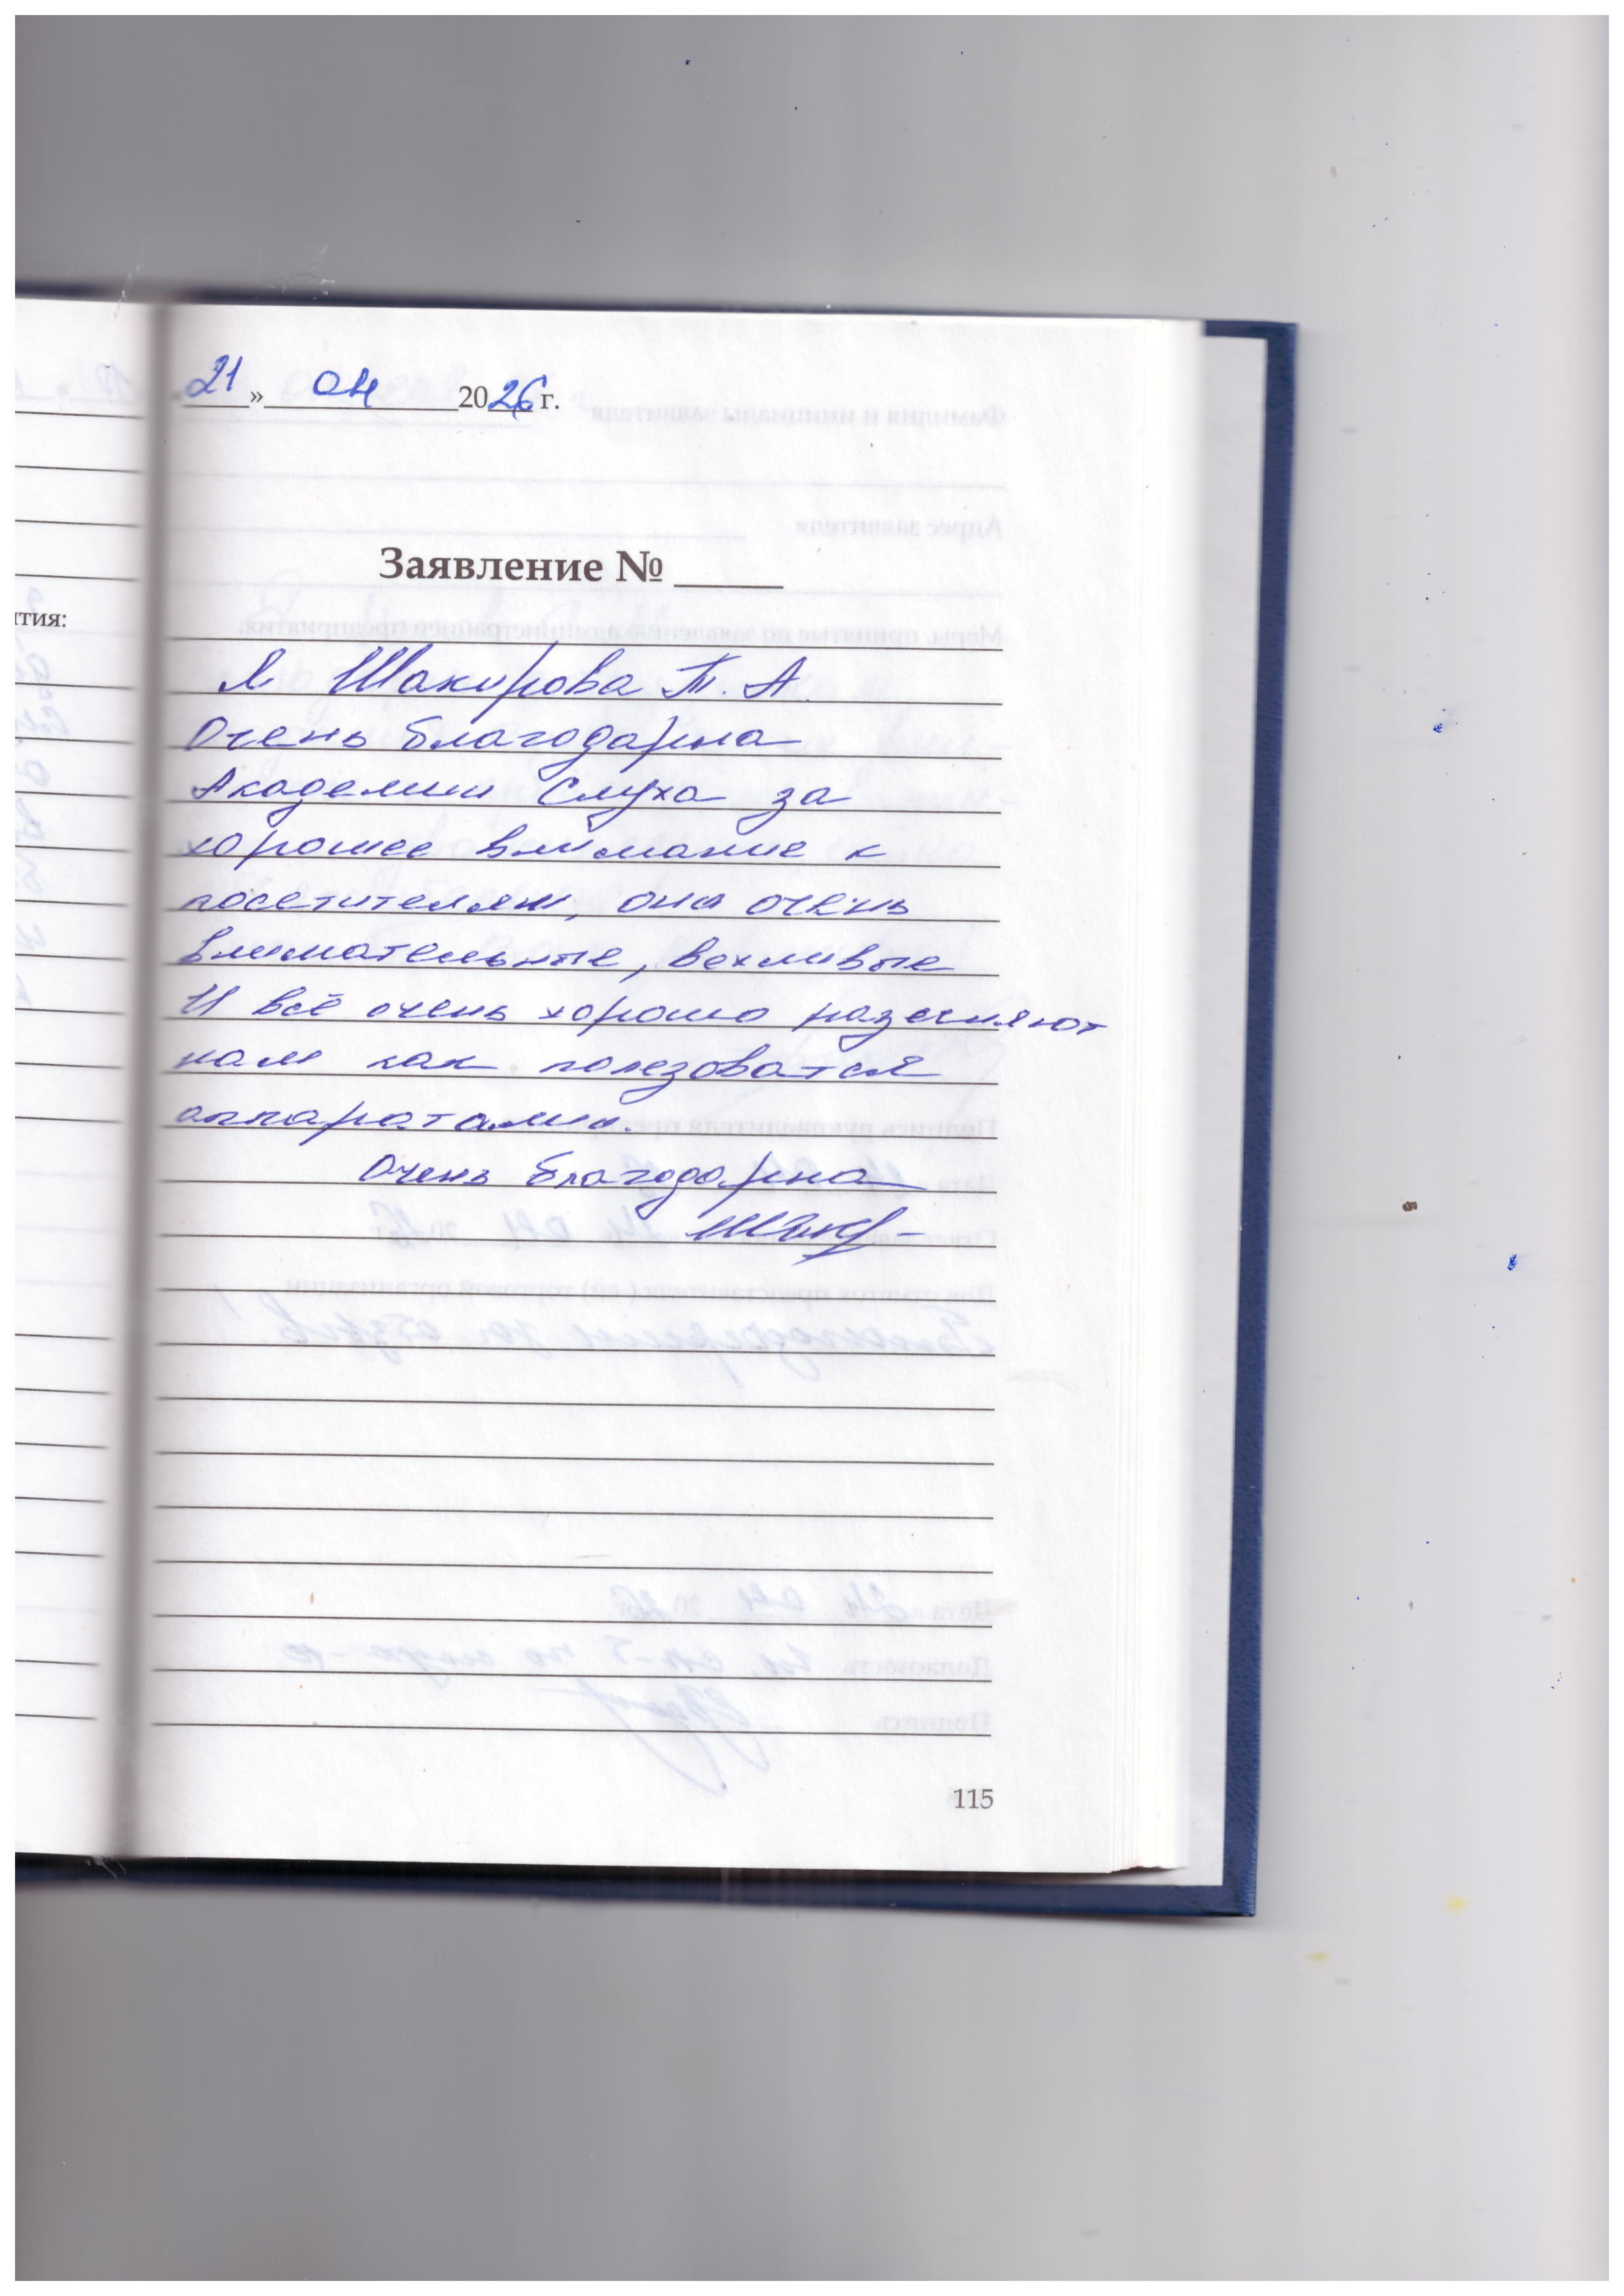 21 » 04 2026 г.
Заявление №
ития:
Я Шакирова Т. А.
Очень благодарна
Академии Слуха за
хорошее внимание к
посетителям, они очень
внимательные, вежливые
И всё очень хорошо разесняют
нам как ползоватся
аппаратами.
Очень благодарна
115